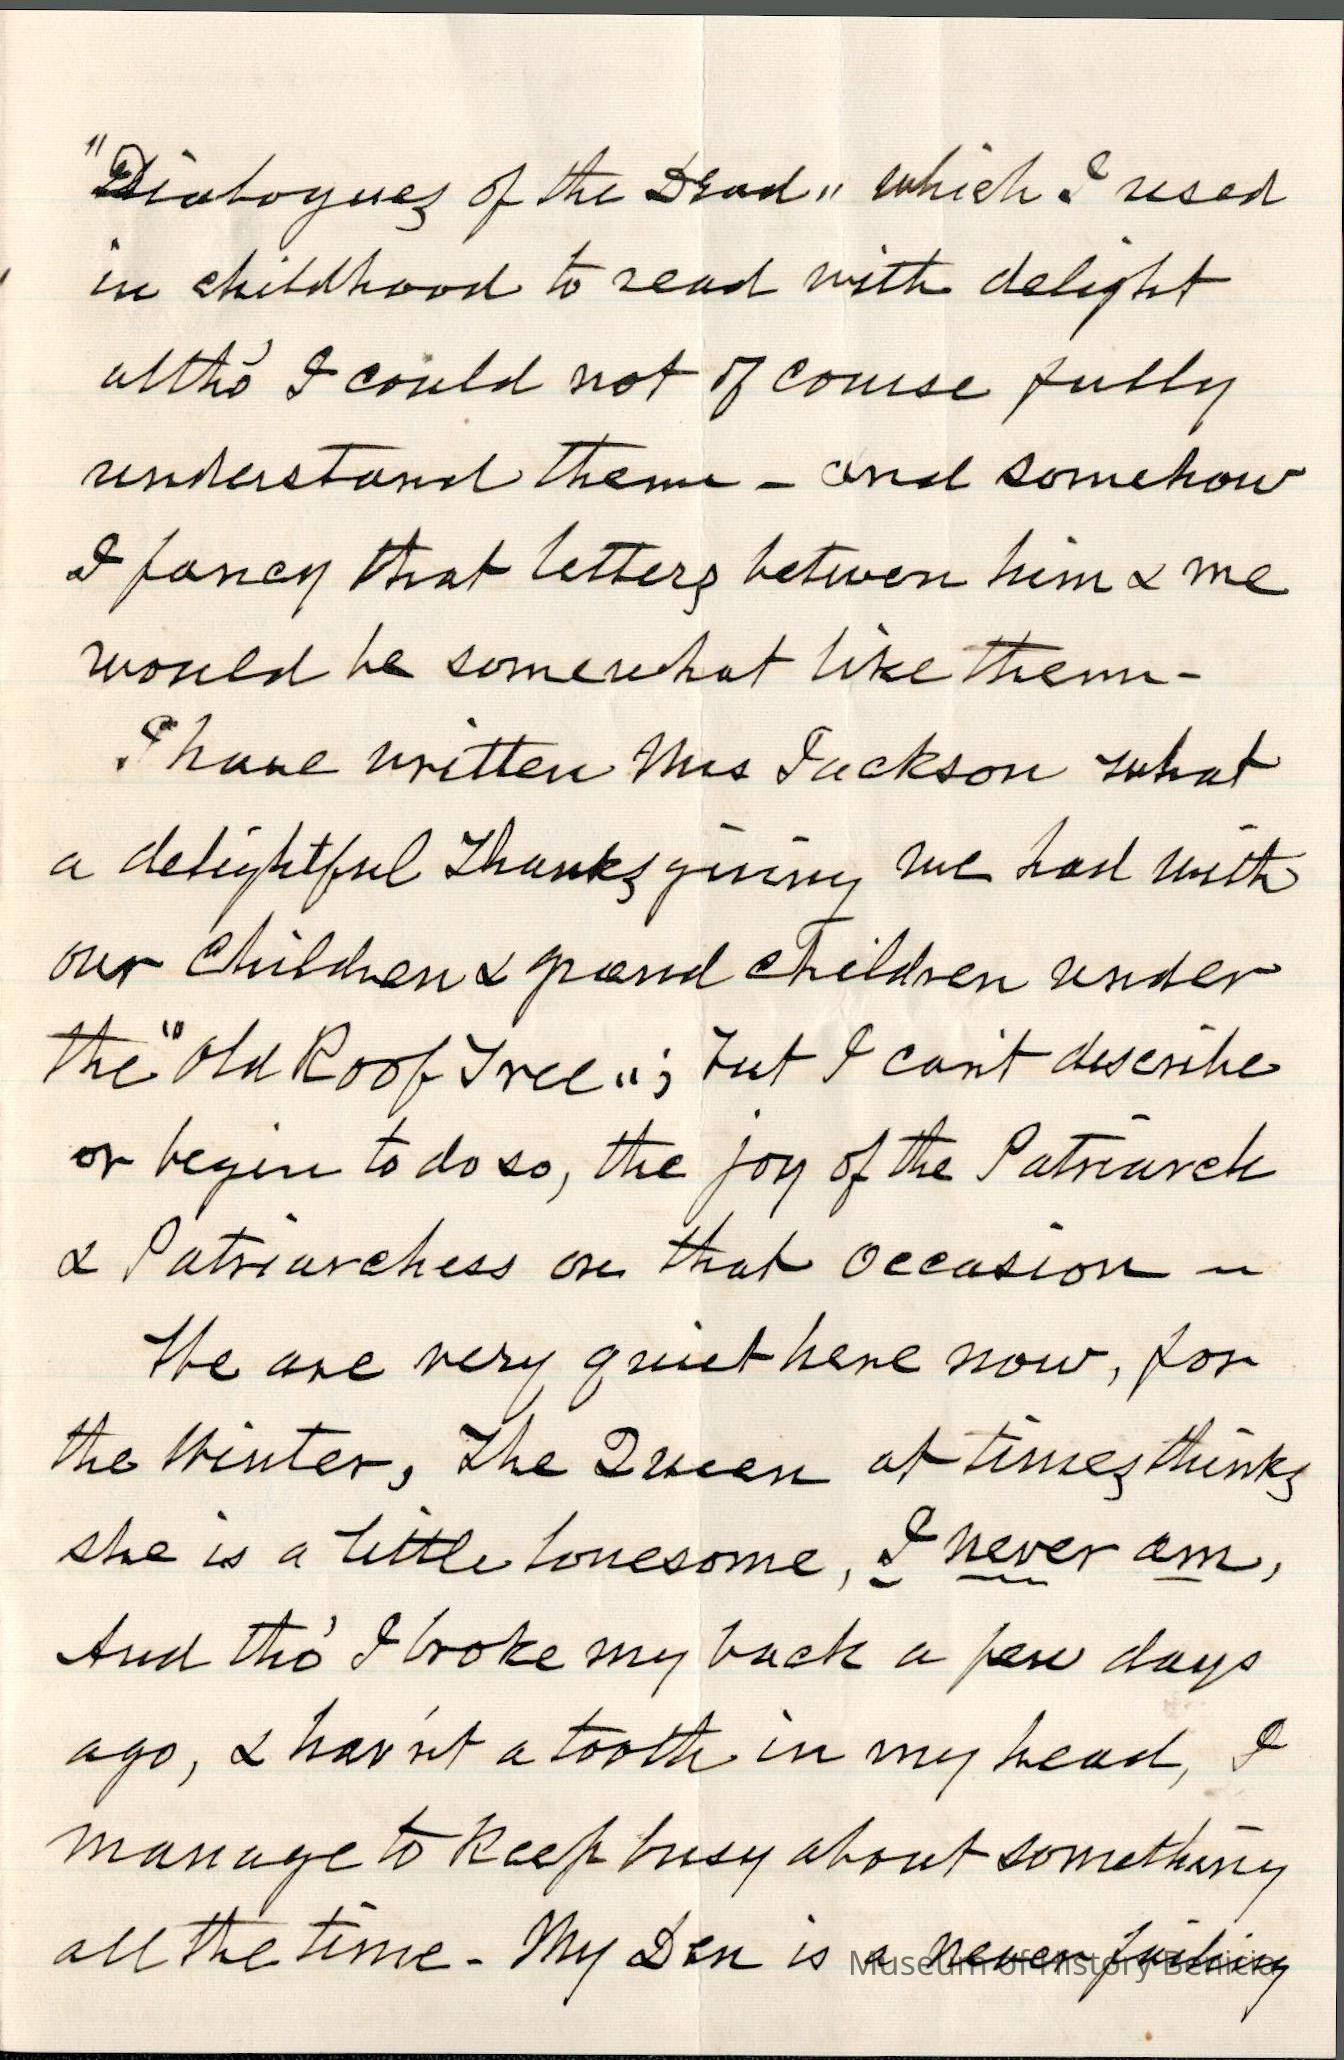 "Dialogues of the Dead" which I used
in childhood to read with delight
altho' I could not of course fully
understand them - and somehow
I fancy that letters between him & me
would be somewhat like them -
I have written Mrs Jackson what
a delightful Thanksgiving we had with
our Children & grand children under
the "Old Roof Tree"; but I can't describe
or begin to do so, the joy of the Patriarch
& Patriarchess on that occasion ~
We are very quiet here now, for
the Winter, The Queen at times thinks
she is a little lonesome, I never am,
And tho' I broke my back a few days
ago, & hav'nt a tooth in my head, I
manage to keep busy about something
all the time - My Den is a never failing
Museum of History Benicia